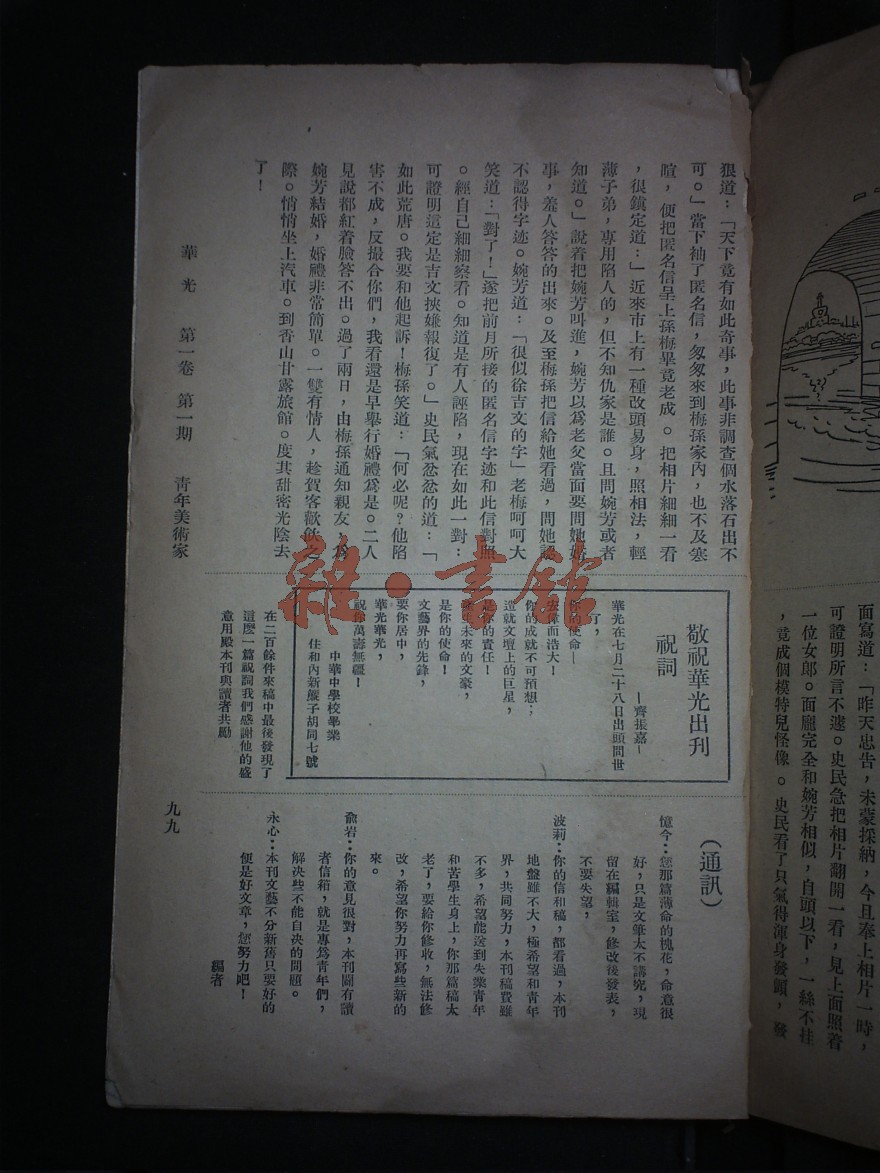 面寫道：「昨天忠告，未蒙採納，今且奉上相片一時，
可證明所言不遽。史民急把相片翻開一看，見上面照着
一位女郎。面龐完全和婉芳相似，自頭以下，一絲不挂
，竟成個模特兒怪像。史民看了只氣得渾身發顫，發
狠道：「天下竟有如此奇事，此事非調查個水落石出不
可。」當下袖了匿名信，匆匆來到梅孫家內，也不及寒
暄，便把匿名信呈上孫梅畢竟老成。把相片細細一看
，很鎮定道：」近來市上有一種改頭易身，照相法，輕
薄子弟，專用陷人的，但不知仇家是誰。且問婉芳或者
知道。」說着把婉芳叫進，婉芳以爲老父當面要問她婚
事，羞人答答的出來。及至梅孫把信給她看過，問她認
不認得字迹。婉芳道：「很似徐吉文的字」老梅呵呵大
笑道：「對了！」遂把前月所接的匿名信字迹和此信對照
。經自己細細察看。知道是有人誣陷，現在如此一對：
可證明這定是吉文挾嫌報復了。」史民氣忿忿的道：「
如此荒唐。我要和他起訴！梅孫笑道：「何必呢？他陷
害不成，反撮合你們，我看還是早舉行婚禮爲是。二人
見說都紅着臉答不出。過了兩日，由梅孫通知親友，爲
婉芳結婚，婚禮非常簡單。一雙有情人，趁賀客歡飲之
際。悄悄坐上汽車。到香山甘露旅館。度其甜密光陰去
了！
華光 第一卷 第一期 青年美術家
敬祝華光出刊
祝詞
—齊振嘉—
華光在七月二十八日出頭問世
了，
你的使命—
去偉而浩大！
你的成就不可預想；
造就文壇上的巨星，
是你的責任！
誕生未來的文豪，
是你的使命！
文藝界的先鋒，
要你居中，
華光華光，
祝你萬壽無疆！
中華中學校畢業
住和內新簾子胡同七號
在二百餘件來稿中最後發現了
這麽一篇祝詞我們感謝他的盛
意用殿本刊與讀者共勵
（通訊）
憶今：您那篇薄命的槐花，命意很
好，只是文筆太不講究，現
留在編輯室，修改後發表，
不要失望，
波莉：你的信和稿，都看過，本刊
地盤雖不大，極希望和青年
界，共同努力，本刊稿費雖
不多，希望能送到失業青年
和苦學生身上，你那篇稿太
老了，要給你修收，無法修
改，希望你努力再寫些新的
來。
兪岩：你的意見很對，本刊闢有讀
者信箱，就是專爲青年們，
解決些不能自決的問題。
永心：本刊文藝不分新舊只要好的
便是好文章，您努力吧！
編者
九九
雜·書館